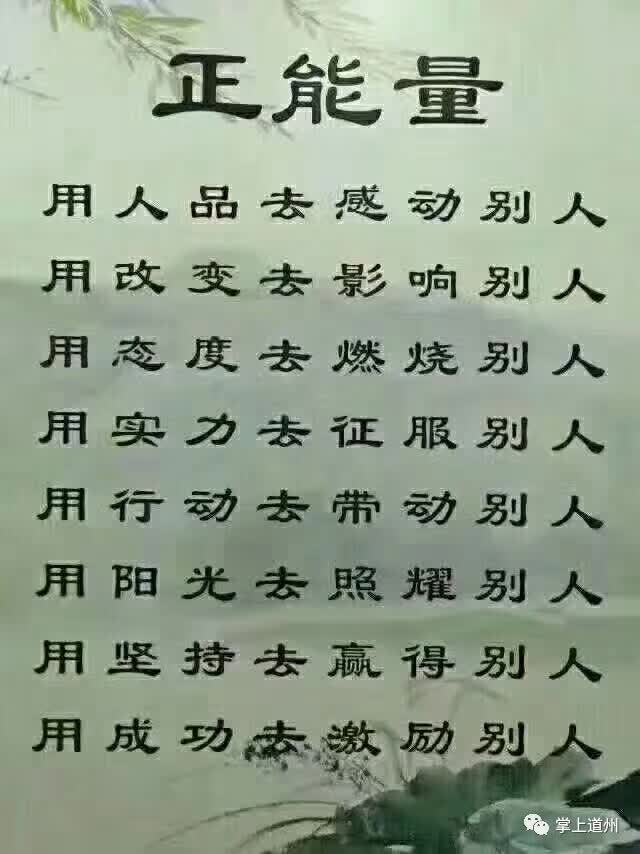 正能量
用人品去感动别人
用改变去影响别人
用态度去燃烧别人
用实力去征服别人
用行动去带动别人
用阳光去照耀别人
用坚持去赢得别人
用成功去激励别人
掌上道州